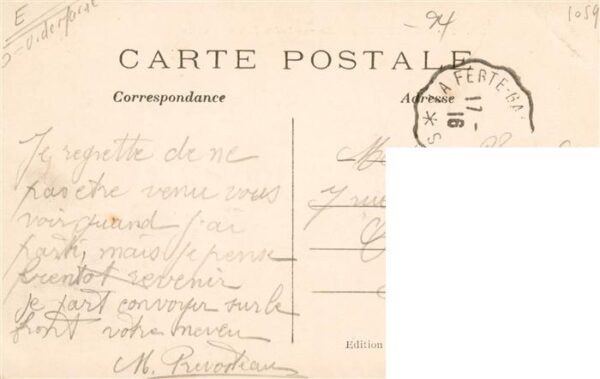 E
1059
-94
CARTE POSTALE
Correspondance
Adresse
LA FERTE-GA
17-
16
Je regrette de ne
pas etre venu vous
voir quand j'ai
parti, mais je pense
bientot revenir
je part convoyer sur le
front votre neveu
M.
7 rue
Edition